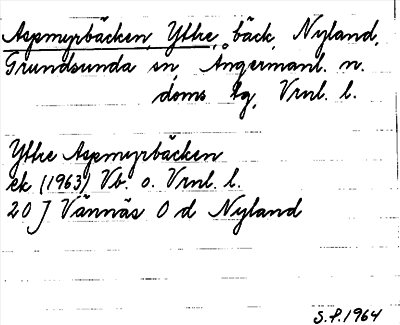 Aspmyrbäcken, Yttre, bäck, Nyland,
Grundsunda sn, Ångermanl. n.
doms tg, Vrnl. l.
Yttre Aspmyrbäcken
ek (1963) Vb. o. Vrnl. l.
20 J Vännäs O d Nyland
S.P. 1964